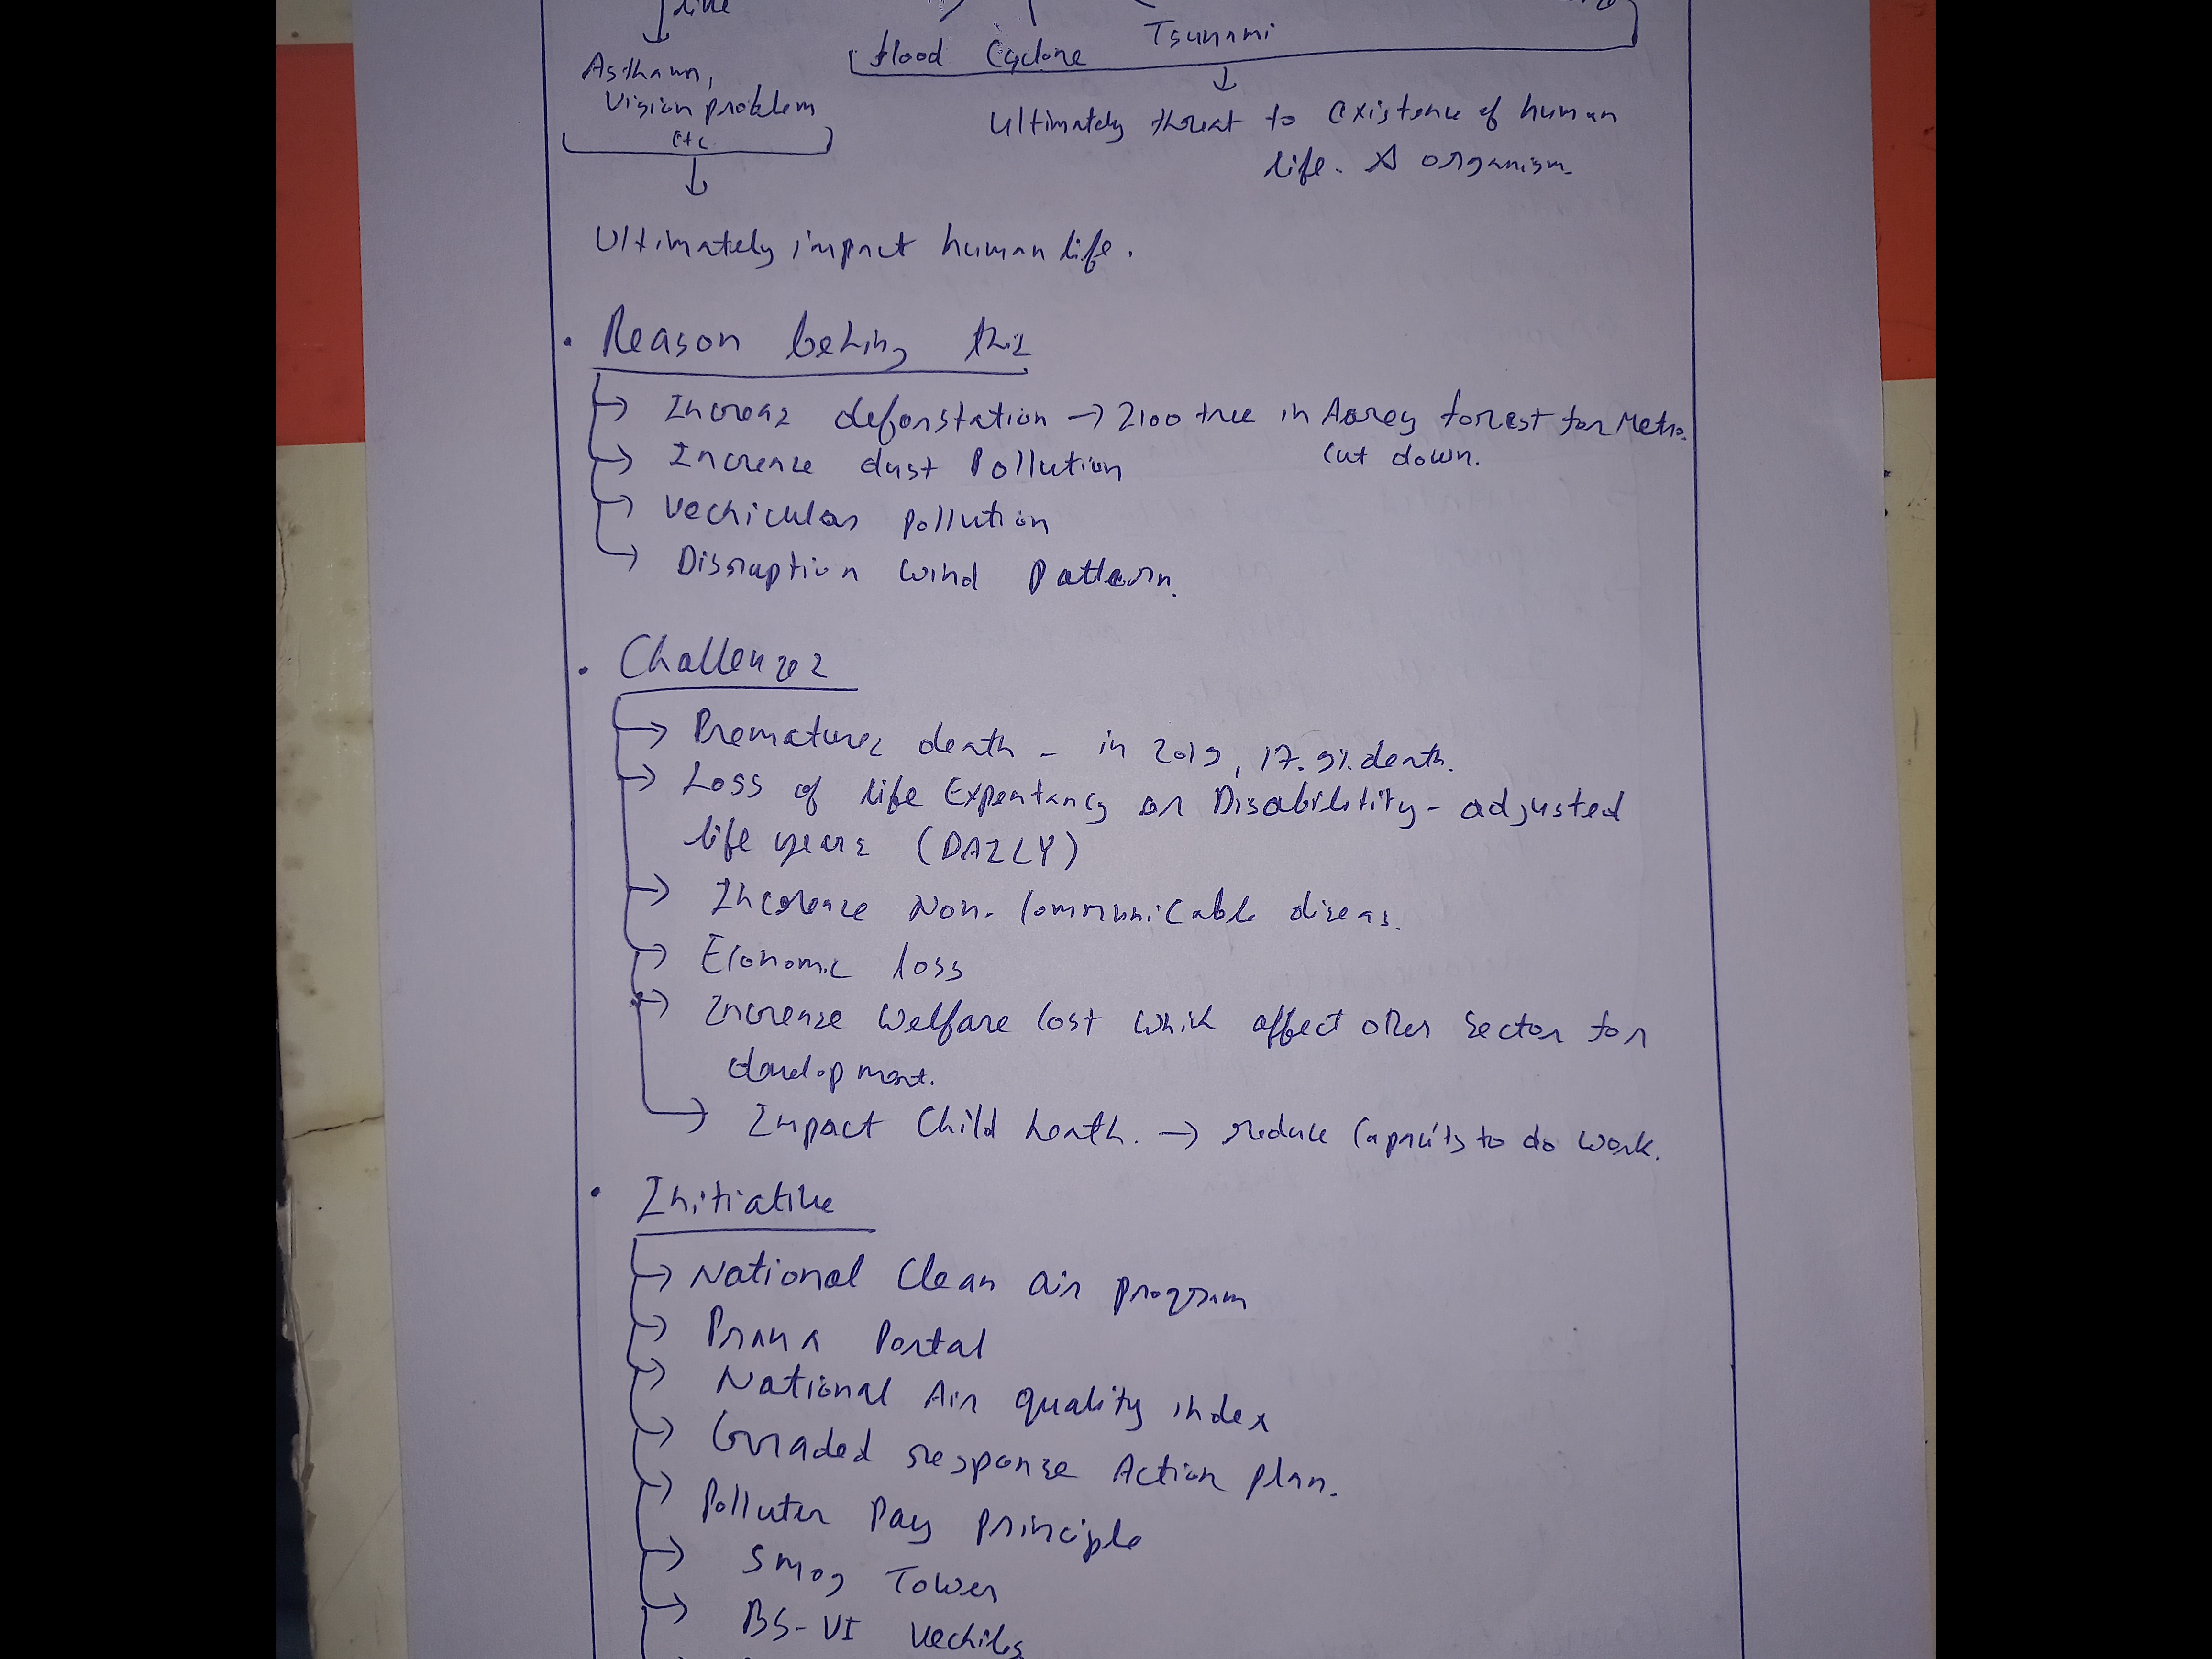 like
Flood Cyclone Tsunami
Asthama,
Vision problem
etc
Ultimately threat to existence of human
life. & organism.
Ultimately impact human life.
• Reason behing this
→ Increase deforstation → 2100 tree in Aarey forest for Metro.
cut down.
→ Increase dust Pollution
→ Vechicular pollution
→ Disruption wind Pattern.
• Challenges
→ Premature death - in 2019, 17.9% death.
→ Loss of life Expentancy or Disabilitity - adjusted
life years (DAILY)
→ Increase Non-Communicable diseas.
→ Economic loss
→ Increase Welfare cost which affect other sector for
development.
→ Impact Child heath. → reduce capacity to do work.
• Initiative
→ National Clean air program
→ Prana Portal
→ National Air quality index
→ Graded response Action plan.
→ Polluter Pay principle
→ Smog Tower
→ BS-VI Vechiles